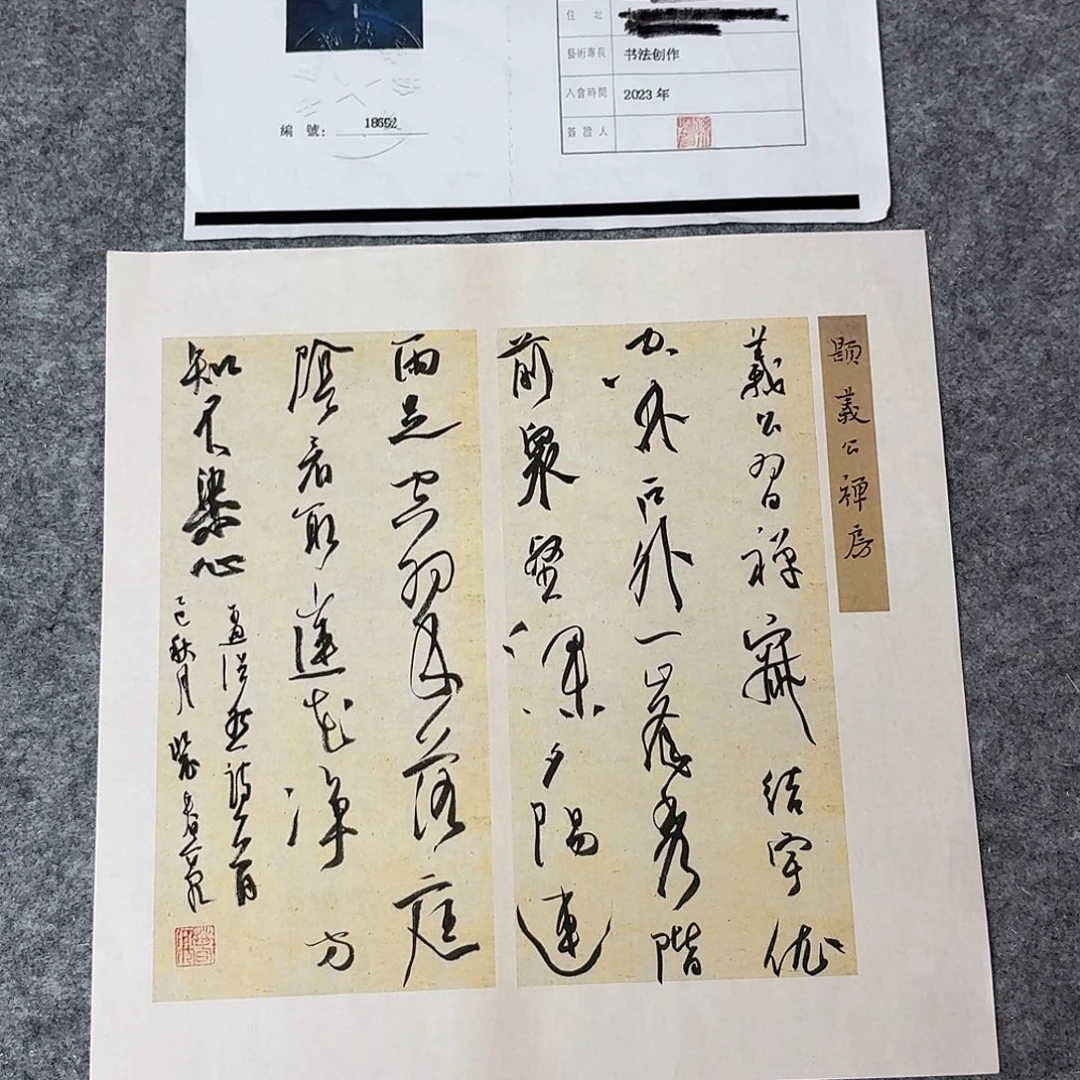 住 址
藝術專長 书法创作
入會時間 2023 年
簽證人
編 號: 18692
題義公禪房
義公習禪寂結宇依
空林户外一峯秀階
前衆壑深夕陽連
雨足空翠落庭
陰看取蓮花净方
知不染心
孟浩然詩一首
乙巳秋月